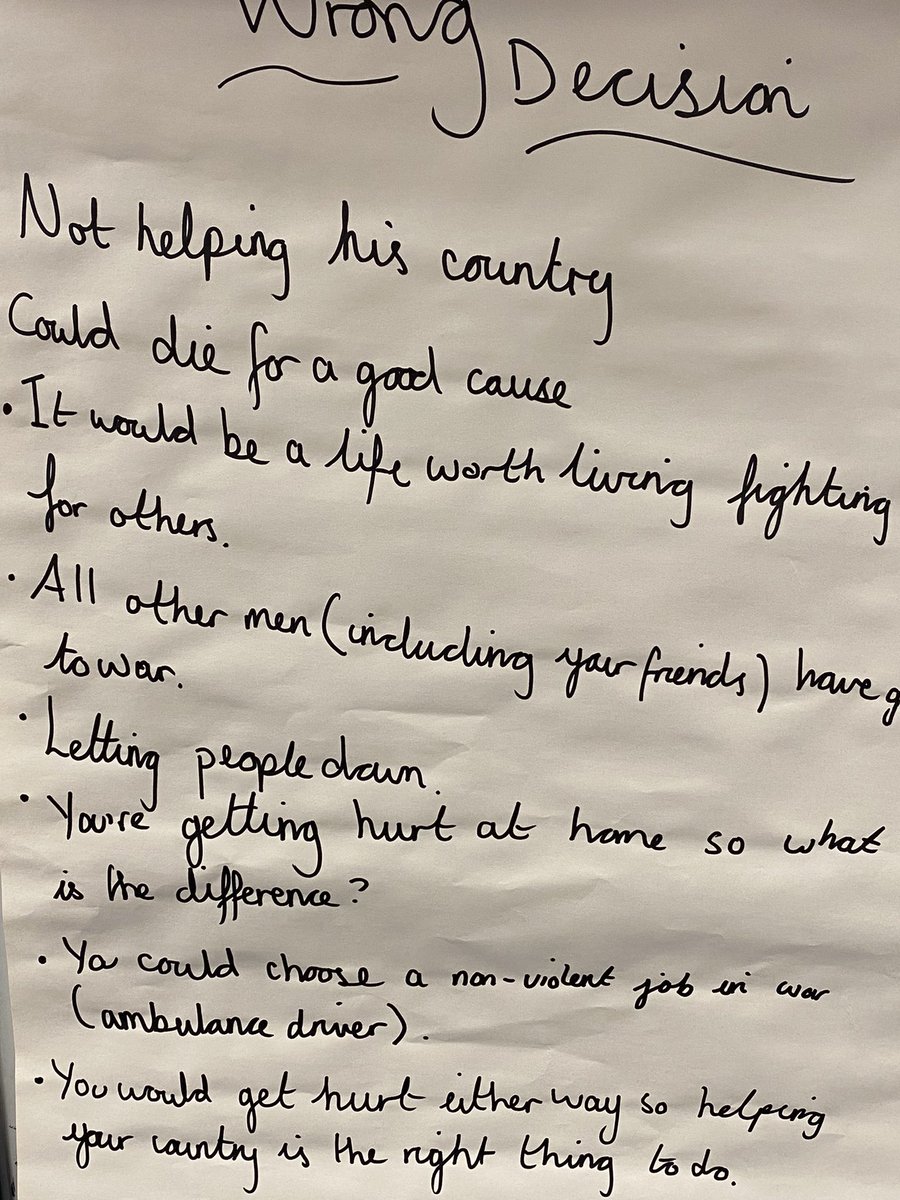 Wrong
Decision
Not helping his country
Could die for a good cause
• It would be a life worth living fighting
for others.
• All other men (including your friends) have
to war.
• Letting people down.
• You're getting hurt at home so what
is the difference?
• You could choose a non-violent job in war
(ambulance driver).
• You would get hurt either way so helping
your country is the right thing to do.